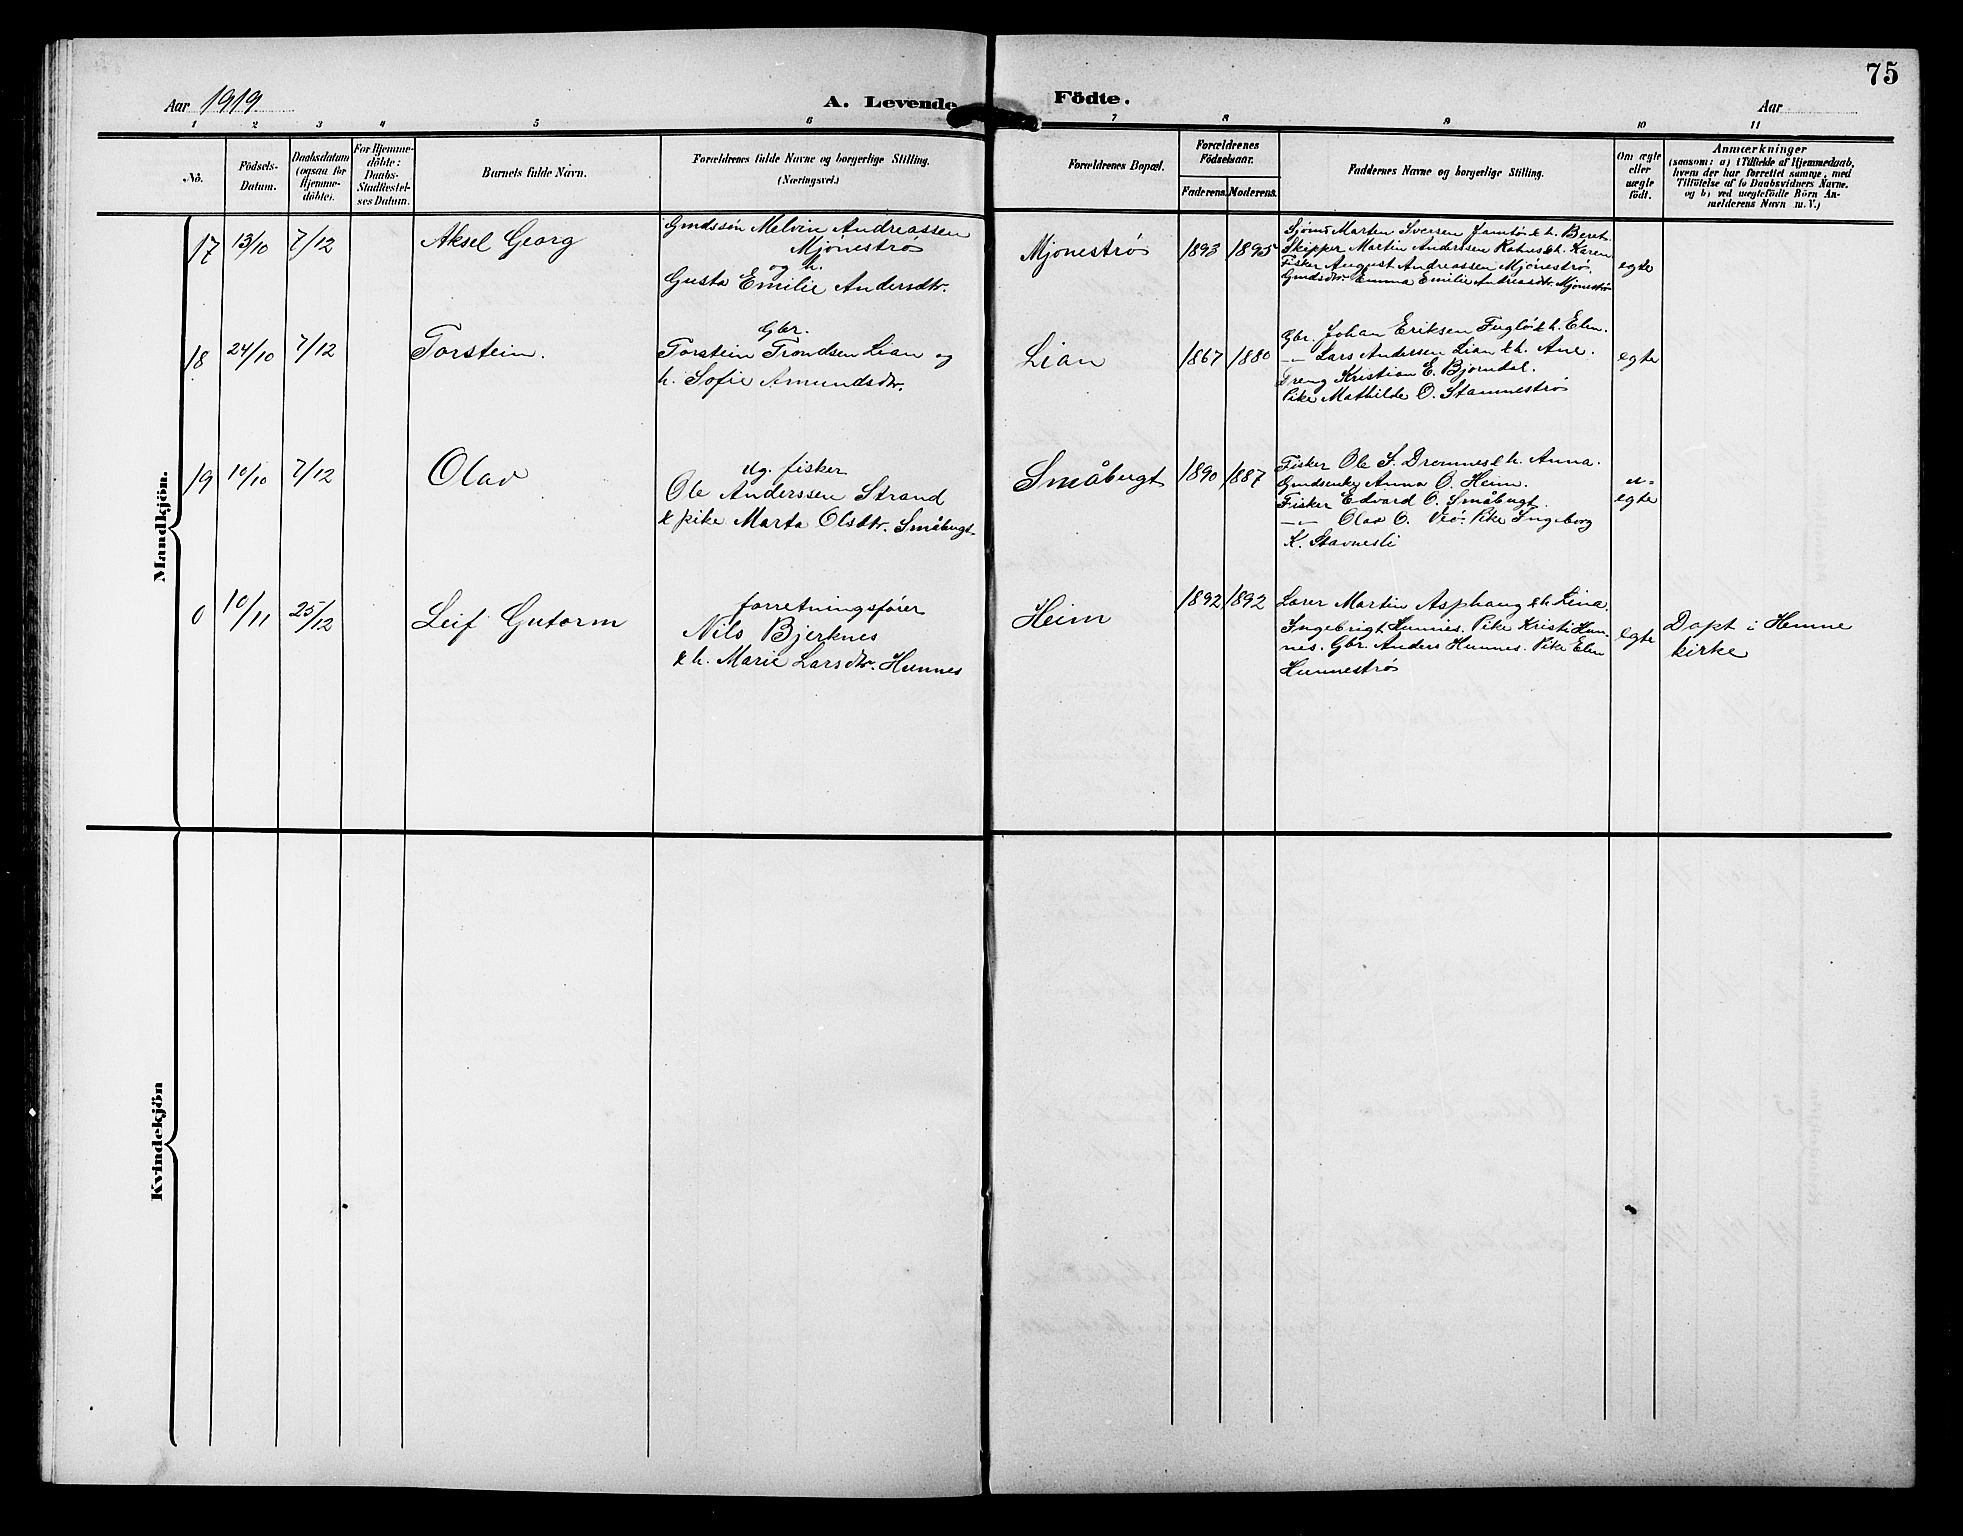 75
Aar 1919
A. Levende Födte.
Aar
1 2 3 4 5 6 7 8 9 10 11
No.
Födsels-
Datum.
Daabsdatum
(ogsaa for
Hjemme-
döbte).
For Hjemme-
döbte:
Daabs-
Stadfæstel-
ses Datum.
Barnets fulde Navn.
Forældrenes fulde Navne og borgerlige Stilling.
(Næringsvei.)
Forældrenes Bopæl.
Forældrenes
Födselsaar.
Faderens. Moderens.
Faddernes Navne og borgerlige Stilling.
Om ægte
eller
uægte
födt.
Anmærkninger
(saasom: a) i Tilfælde af Hjemmedaab,
hvem der har forrettet samme, med
Tilföielse af to Daabsvidners Navne.
og b) ved uægtefödte Börn An-
melderens Navn m. V.)
Mandkjön.
17 13/10 7/12 Aksel Georg
Gmdssön Melvin Andreassen
Mjönestrø
og h.
Gusta Emilie Andersdtr.
Mjönestrø 1893 1895
Marten Iversen h. Beret.
Skipper Martin Anderssen h. Karen
Fisker August Andreassen Mjönestrø.
Gmdsdtr. Emma Emilie Andreasdtr. Mjönestrø
egte
18 24/10 7/12 Torstein.
Gbr.
Torstein Trondsen Lian og
h. Sofie Amundsdtr.
Lian 1867 1880
Gbr. Johan Eriksen Fuglø & h. Elen.
-"- Lars Andersen Lian & h. Ane.
Dreng Kristian E. Bjørndal.
Pike Mathilde O. Stamnestrø
egte
19 10/10 7/12 Olav
Ug. fisker
Ole Anderssen Strand
& pike Marta Olsdtr. Småbugt
Småbugt 1890 1887
Fisker Ole S. Dromnes & h. Anna.
Gmdsenke Anna O. Heim.
Fisker Edvard O. Småbugt.
-"- Olav O. Pike Ingeborg
K. Stavnesli
u-
egte
0 10/11 25/12 Leif Gutorm
forretningsfører
Nils Bjerknes
& h. Marie Larsdtr. Hunnes
Heim 1892 1892
Lærer Martin Asphaug & h. Lina.
Ingebrigt Hunnes. Pike Kristi Hun-
nes. Gbr. Anders Hunnes. Pike Elen
Hunnestrø
egte
Døpt i Hemne
kirke
Kvindekjön